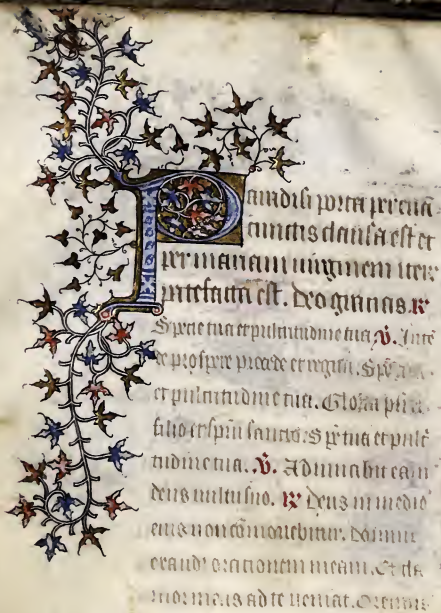 Paradisi porta per eua
cunctis clausa est et
per mariam uirginem iter
patefacta est. Deo gratias. ℟
Specie tua et pulcritudine tua. ℣. Inte
de prospere procede et regna. Spē tua
et pulcritudine tua. Gloria pr̄i
filio et spiu sancto. Spē tua et pulcr
tudine tua. ℣. Adiuuabit eam
deus uultu suo. ℟ Deus in medio
eius non cōmouebitur. Domine
exaudi orationem meam. Et cla
mor meus ad te ueniat. Oremus